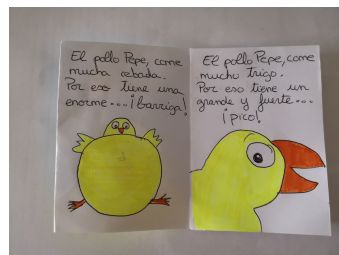 El pollo Pepe, come
mucha cebada.
Por eso tiene una
enorme....¡barriga!
El pollo Pepe, come
mucho trigo.
Por eso tiene un
grande y fuerte...
¡pico!